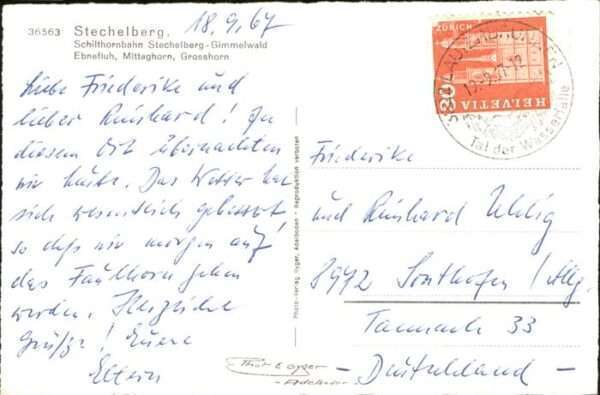 18.9.67
36563 Stechelberg,
Schilthornbahn Stechelberg-Gimmelwald
Ebnefluh, Mittaghorn, Grosshorn
Liebe Friederike und
lieber Reinhard! In
diesem Ort übernachten
wir heute. Das Wetter hat
sich wesentlich gebessert,
so daß wir morgen auf
das Faulhorn gehen
werden. Herzliche
Grüße! Eure
Eltern
Photo-Verlag Gyger, Adelboden - Reproduktion verboten
ZÜRICH
20
HELVETIA
LAUTERBRUNNEN
Tal der Wasserfälle
Friederike
und Reinhard Uhlig
8972 Sonthofen / Allg.
Tannach 33
- Deutschland -
Gyger
Adelboden